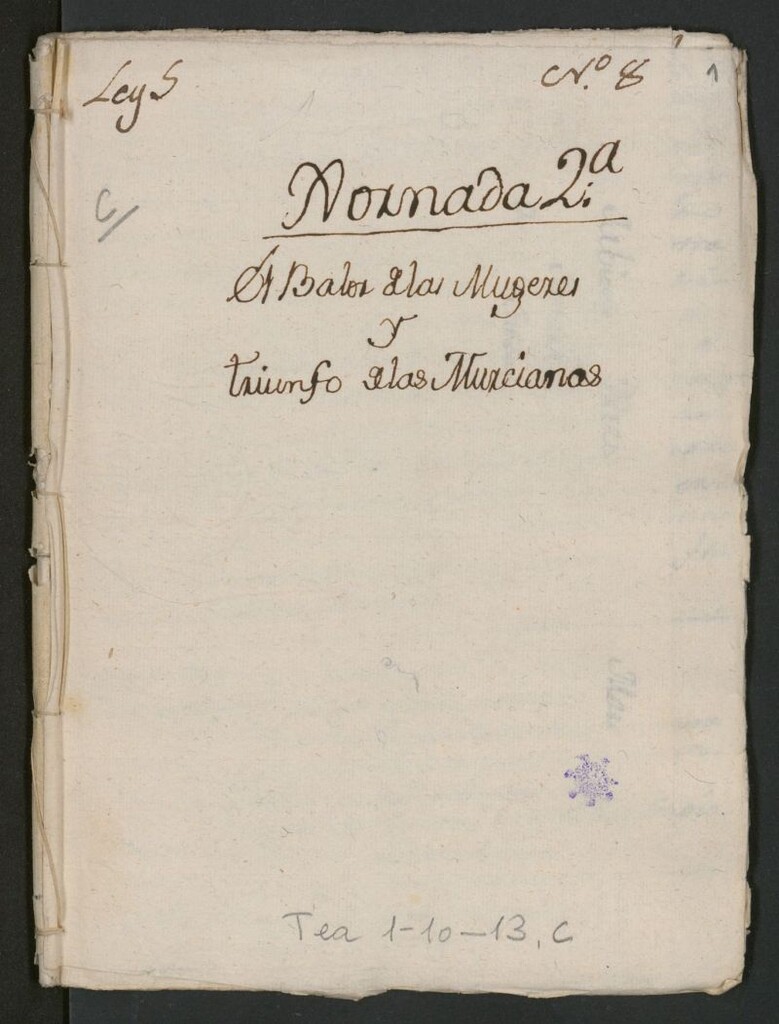 Leg 5 Nº 8 1
C/
Xornada 2.ª
El Balor de las Mugeres
y
triunfo de las Murcianas
Tea 1-10-13, C